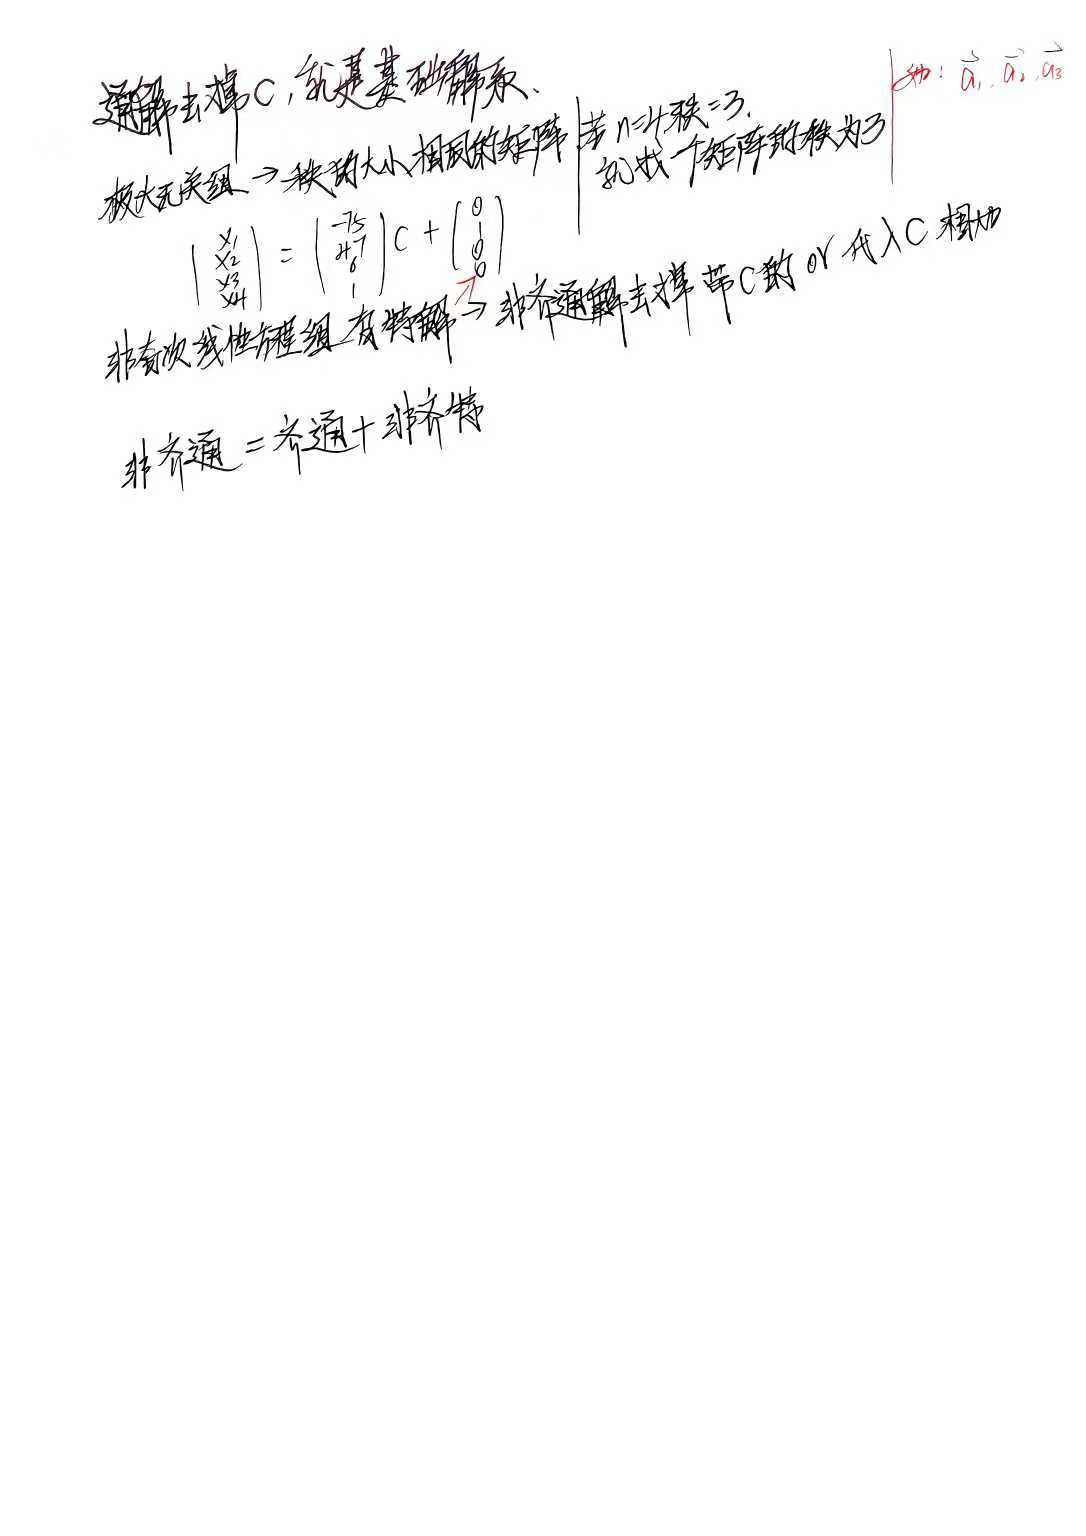 通解去掉C，就是基础解系、
极大无关组→秩的大小相同的矩阵 若n=4秩=3.
就找一个矩阵的秩为3
如：a⃗1, a⃗2, a⃗3
(x1 x2 x3 x4) = (-75 47 6 1) C + (0 1 0 0)
非齐次线性方程组有特解→非齐通解去掉带C的 or 代入C相加
非齐通=齐通+非齐特